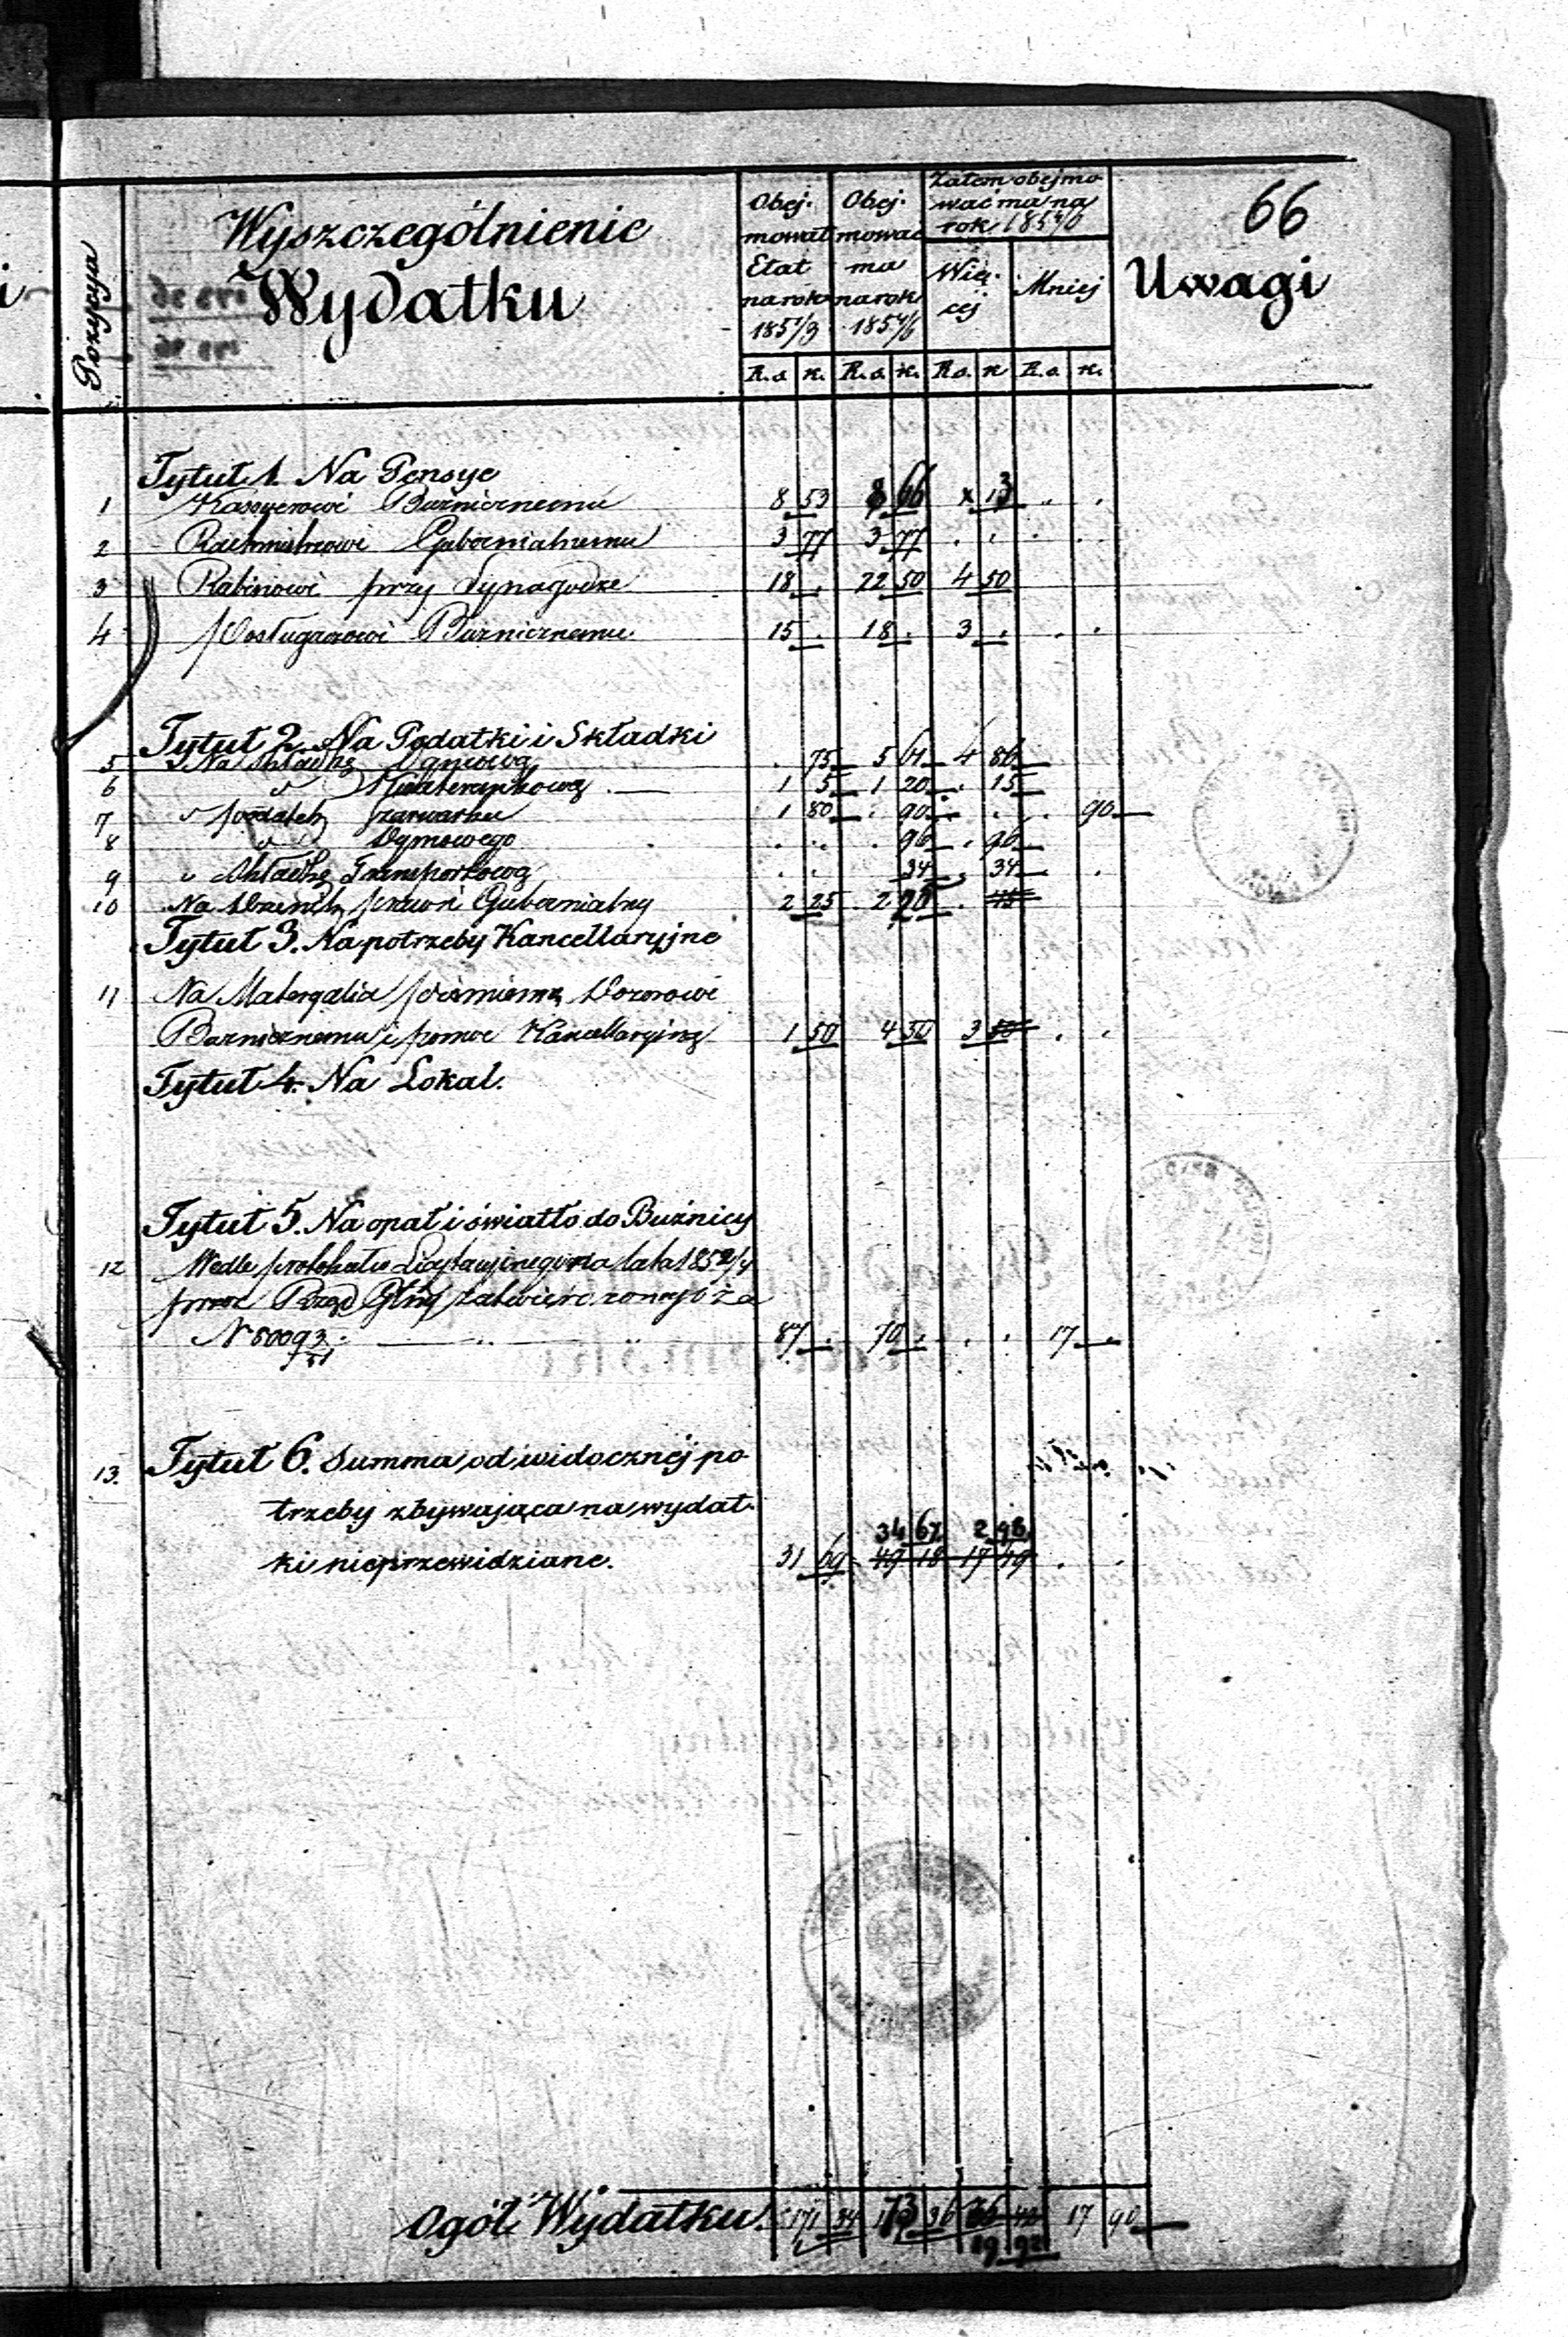 66
Pozycya
Wyszczególnienie
Wydatku
Obej-
mował
Etat
na rok
1851/3
Obej-
mować
ma
na rok
1854/6
Zatem obejmo
wać ma na
rok 1854/6
Wię-
cej
Mniej
Uwagi
R.s. k. R.s. k. R.s. k R.s. k.
Tytuł 1. Na Pensye
1 Kassyerowi Bużnicznemu 8 53 8 66 x 13 . .
2 Rachmistrzowi Gubernialnemu 3 77 3 77 . . . .
3 Rabinowi przy Synagodze 18 . 22 50 4 50
4 Posługaczowi Bużnicznemu 15 . 18 . 3 . . .
Tytuł 2. Na Podatki i Składki
5 Na składkę 75 5 61 4 86
6 " Kwaterunkową 1 5 1 20 . 15
7 " podatek szarwarku 1 80 . 90 . . . 90
8 " Dymowego . . . 96 . 96
9 " składkę Transportową . . 34 . 34 .
10 Na Dziennik Gubernialny 2 25 . 2 25 .
Tytuł 3. Na potrzeby Kancellaryjne
11 Na Materyalia piśmienne Dozorowi
Bużnicznemu i pomoc Kancellaryjną 1 50 4 50 3 . .
Tytuł 4. Na Lokal.
Tytuł 5. Na opał i światło do Bużnicy
12 Wedle protokułu Licytacyjnego na lata 1852/4
przez Rząd Gblny zatwierdzonego za
N 60093 87 . 70 . . . 17
Tytuł 6. Summa od widocznéj po-
13. trzeby zbywająca na wydat-
34 67 2 98
ki nieprzewidziane. 31 69 49 18 17 49 . .
Ogół Wydatku. 171 34 173 36 17 90
19 92